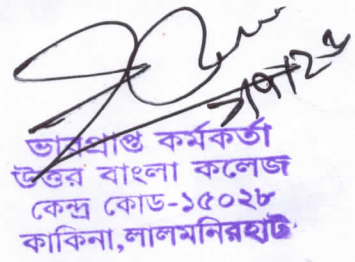 ভারপ্রাপ্ত কর্মকর্তা
উত্তর বাংলা কলেজ
কেন্দ্র কোড-১৫০২৮
কাকিনা,লালমনিরহাট